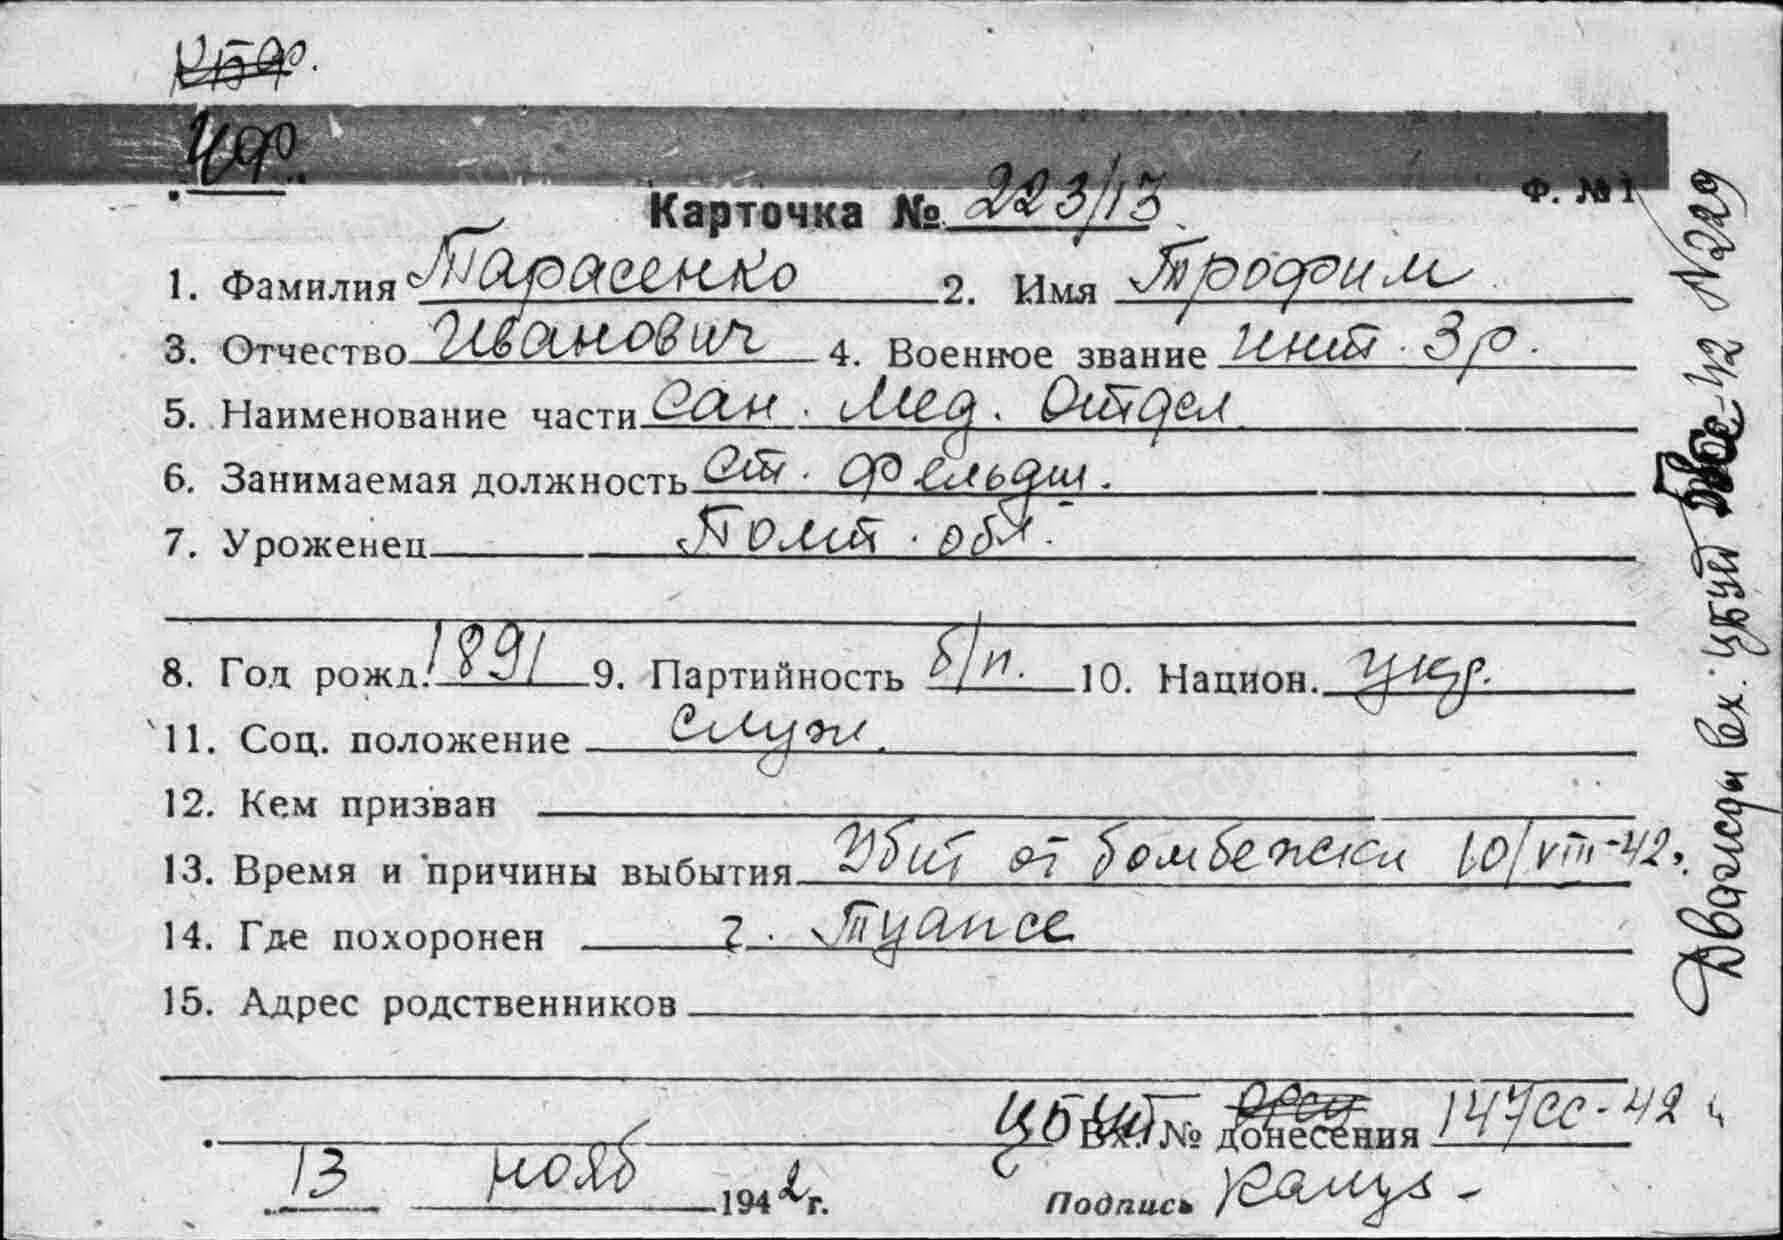 КБФ.
ЧФ.
Ф. №1
Карточка № 223/13
1. Фамилия Тарасенко 2. Имя Трофим
3. Отчество Иванович 4. Военное звание инт. 3 р.
5. Наименование части Сан. Мед. Отдел
6. Занимаемая должность Ст. фельдш.
7. Уроженец Полт. обл.
8. Год рожд. 1891 9. Партийность б/п. 10. Национ. укр.
11. Соц. положение служ.
12. Кем призван
13. Время и причины выбытия Убит от бомбежки 10/VIII-42.
14. Где похоронен г. Туапсе
15. Адрес родственников
ЦБУП Вх. № донесения 147сс-42
13 нояб 1942 г. Подпись
вх. ЦБУП 42 N229